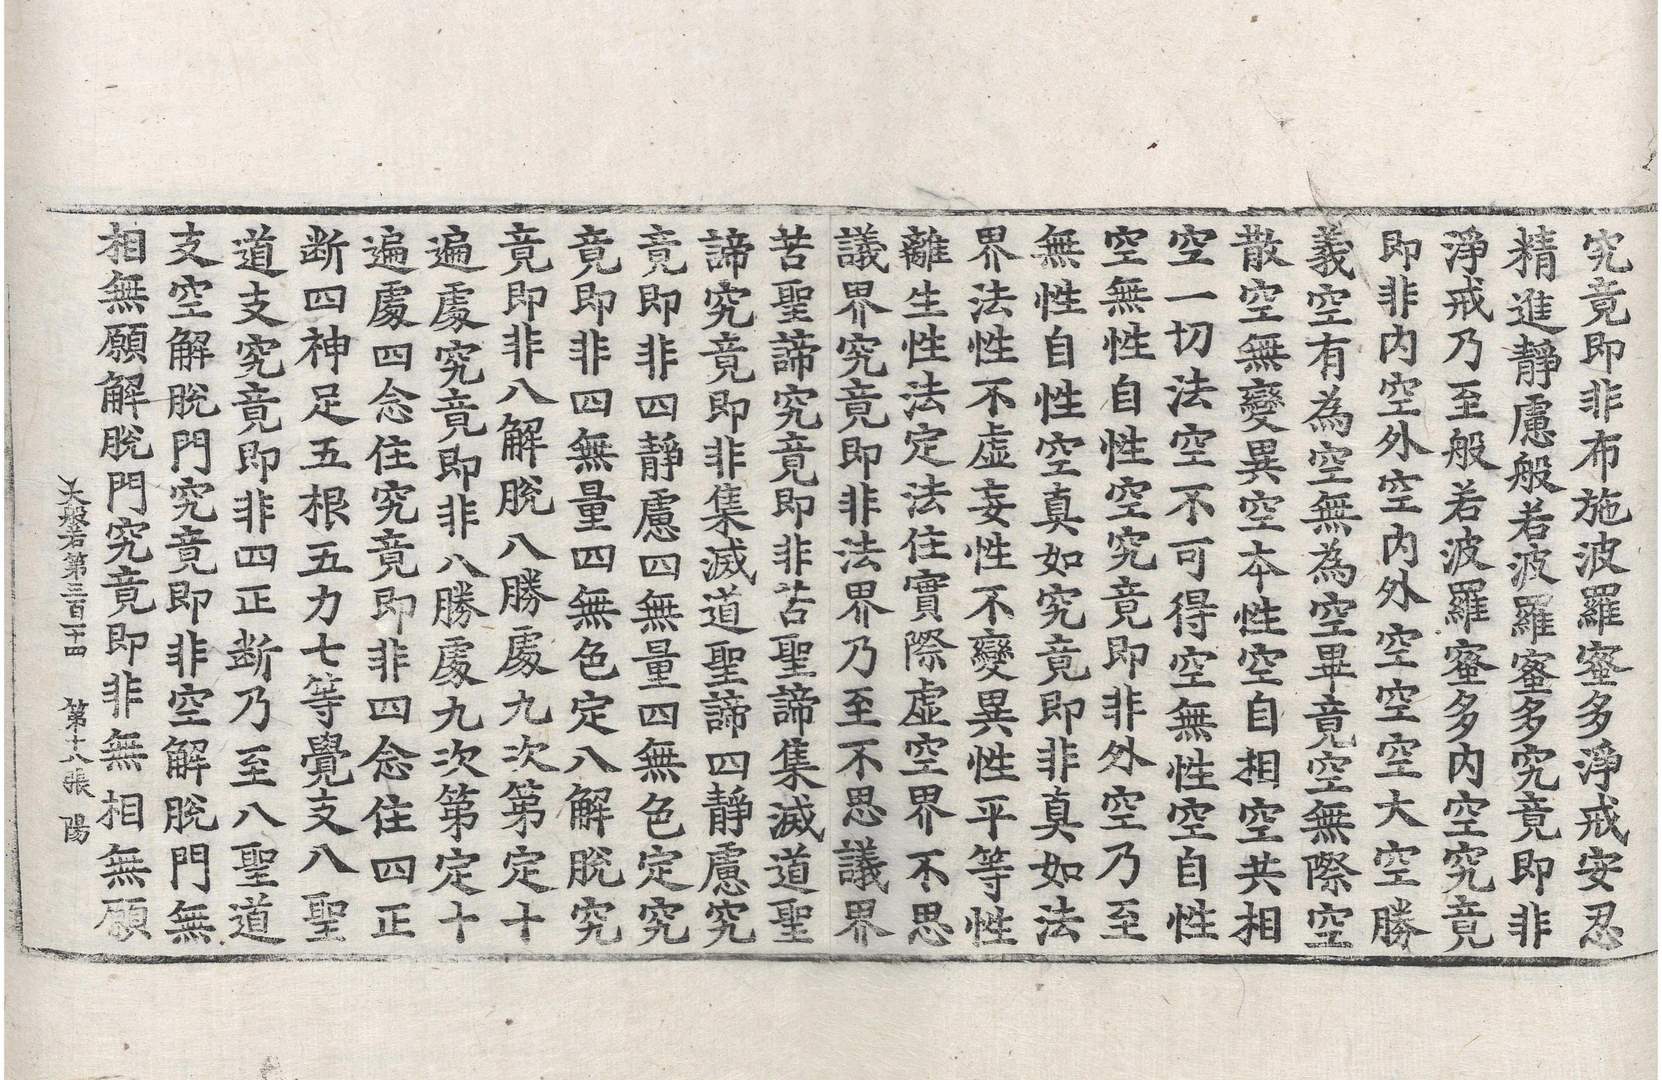 究竟即非布施波羅蜜多淨戒安忍
精進靜慮般若波羅蜜多究竟即非
淨戒乃至般若波羅蜜多內空究竟
即非內空外空內外空空空大空勝
義空有為空無為空畢竟空無際空
散空無變異空本性空自相空共相
空一切法空不可得空無性空自性
空無性自性空究竟即非外空乃至
無性自性空真如究竟即非真如法
界法性不虛妄性不變異性平等性
離生性法定法住實際虛空界不思
議界究竟即非法界乃至不思議界
苦聖諦究竟即非苦聖諦集滅道聖
諦究竟即非集滅道聖諦四靜慮究
竟即非四靜慮四無量四無色定究
竟即非四無量四無色定八解脫究
竟即非八解脫八勝處九次第定十
遍處究竟即非八勝處九次第定十
遍處四念住究竟即非四念住四正
斷四神足五根五力七等覺支八聖
道支究竟即非四正斷乃至八聖道
支空解脫門究竟即非空解脫門無
相無願解脫門究竟即非無相無願
大般若第三百二十四 第十八張 陽